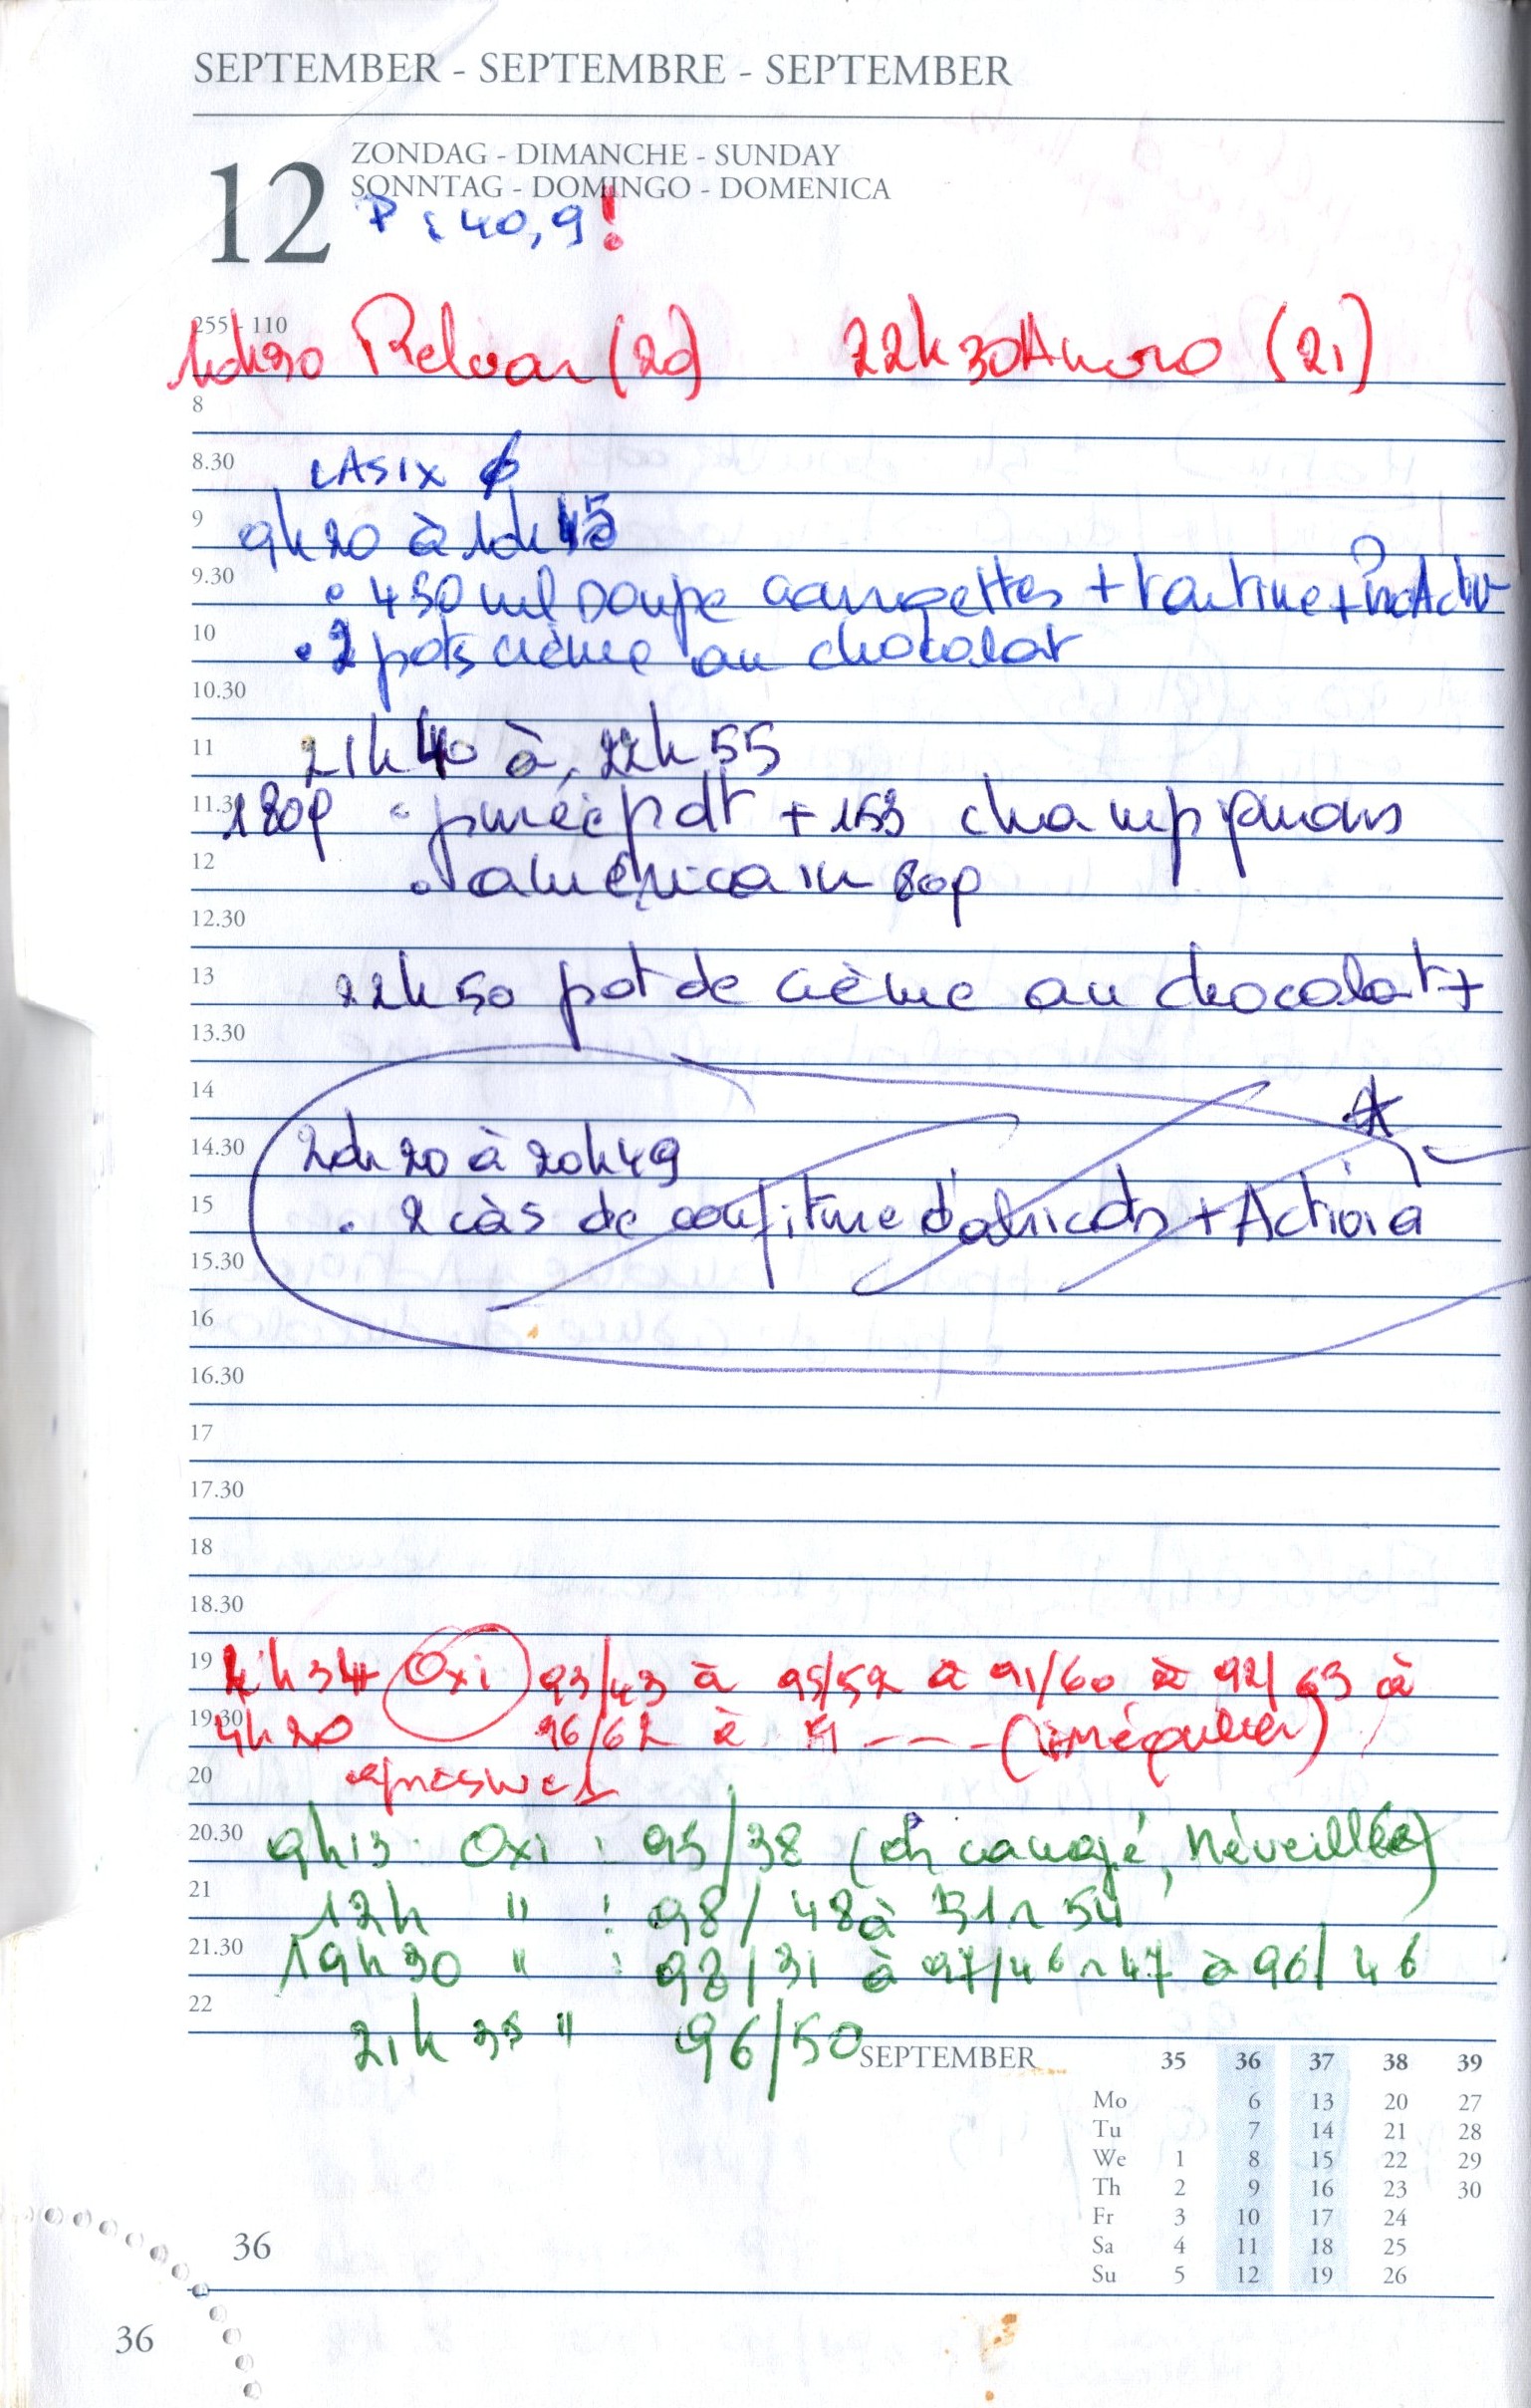 SEPTEMBER - SEPTEMBRE - SEPTEMBER
12
ZONDAG - DIMANCHE - SUNDAY
SONNTAG - DOMINGO - DOMENICA
P : 40,9!
255 - 110
10h30 Relvar (20) 22h30 Anoro (21)
8
8.30 LASIX
9 9h20 à 10h45
9.30 • 450 ml soupe courgettes + tartine +
10 • 2 pots crème au chocolat
10.30
11 21h40 à 22h55
11.30 180g • purée pdt + 153 champignons
12 • américain 80g
12.30
13 22h50 pot de crème au chocolat +
13.30
14
14.30 20h20 à 20h49
15 • 2 càs de confiture d'abricots + Activia
15.30
16
16.30
17
17.30
18
18.30
19 h34 Oxi 93/43 à 95/52 à 91/60 à 92/63 à
19.30 4h20 96/62 à ---- (irrégulier)
20
20.30 9h13 Oxi : 95/38 ( canapé, réveillée)
21 12h " : 98/48 à 51 ~ 54
21.30 19h30 " : 98/31 à 97/46 ~ 47 à 96/46
22
21h35 " 96/50
SEPTEMBER 35 36 37 38 39
Mo 6 13 20 27
Tu 7 14 21 28
We 1 8 15 22 29
Th 2 9 16 23 30
Fr 3 10 17 24
Sa 4 11 18 25
Su 5 12 19 26
36
36